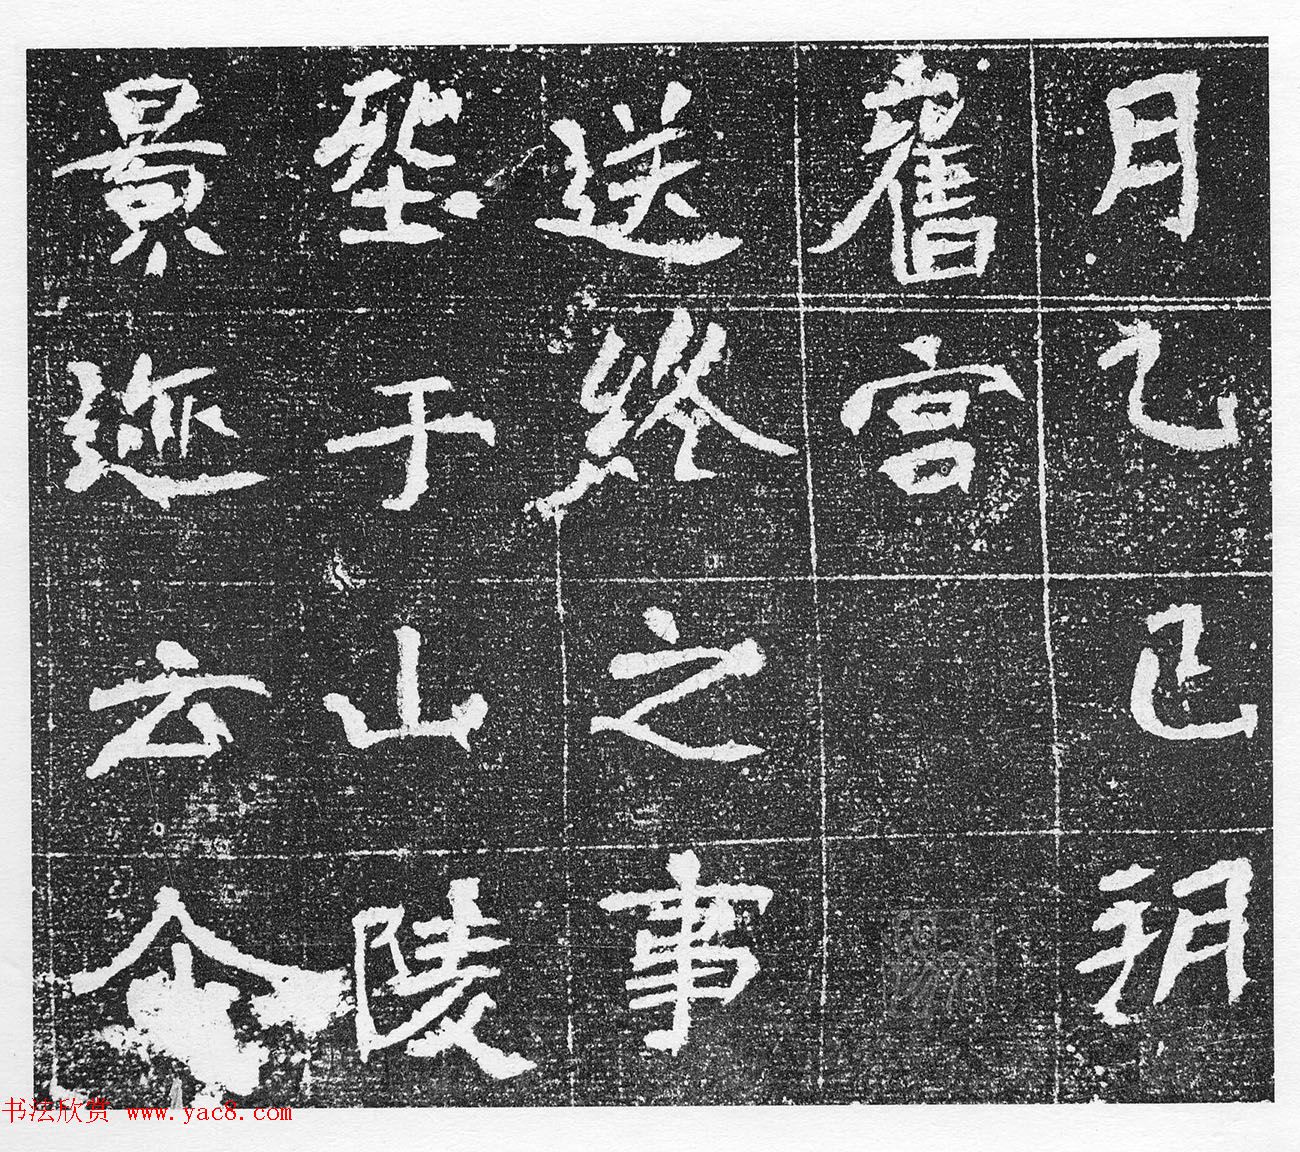 月乙巳朔
舊宫
送終之事
堲于山陵
景迹云
书法欣赏 www.yac8.com